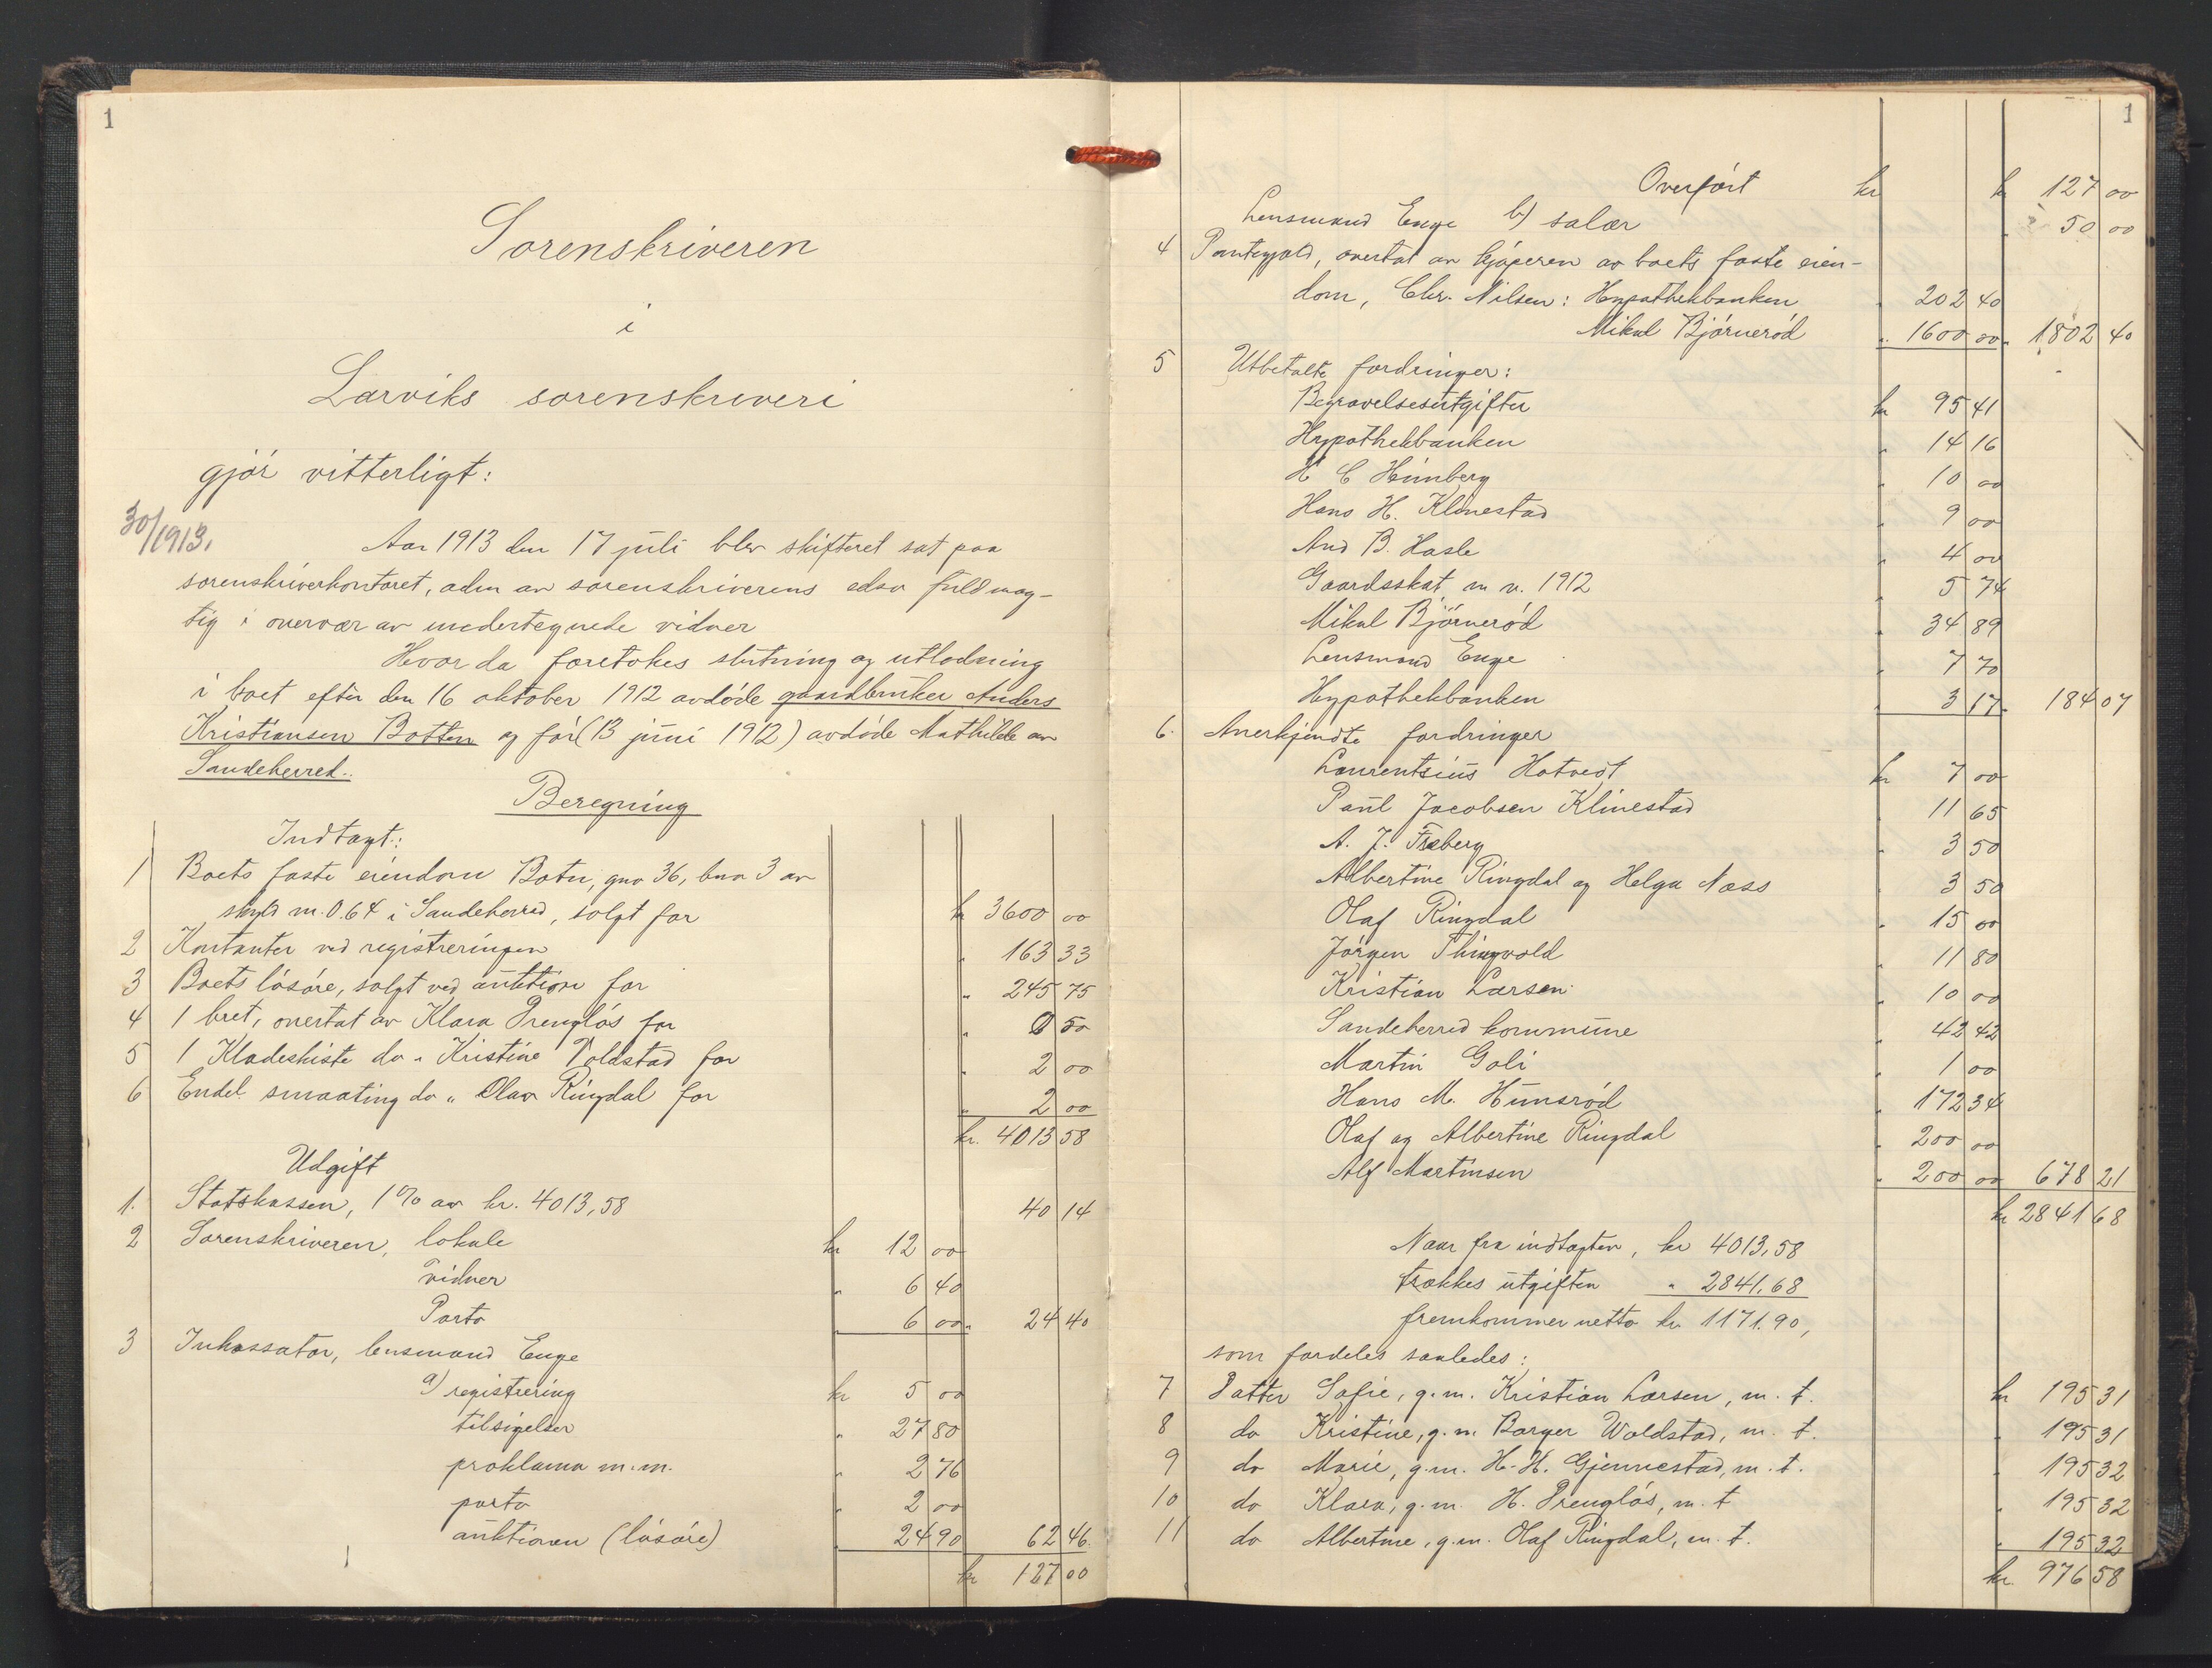 1
Sorenskriveren
i
Larviks sorenskriveri
gjór vitterligt:
30/1913.
Aar 1913 den 17 juli blev skifteret sat paa
sorenskriverkontoret, adm av sorenskriverens edsv fuldmæg-
tig i overvær av undertegnede vidner
Hvor da foretokes slutning og utlodning
i boet efter den 16 oktober 1912 avdóde gaardbruker Anders
Kristiansen Botten og fór (13 juni 1912) avdóde Mathilde av
Sandeherred.
Beregning
Indtægt:
1 Boets faste eiendom Boten, gno 36, bno 3 av
skyld m. 0.64 i Sandeherred, solgt for kr 3600 00
2 Kontanter ved registreringen " 163 33
3 Boets lósóre, solgt ved auktion for " 245 75
4 1 bret, overtat av Klara Prenglós for " 0 50
5 1 Klædeskiste do " Kristine Voldstad for " 2 00
6 Endel smaating do " Olav Ringdal for " 2 00
kr. 4013 58
Udgift
1. Statskassen, 1% av kr. 4013,58 40 14
2 Sorenskriveren, lokale kr 12 00
vidner " 6 40
Porto " 6 00 " 24 40
3 Inkassator, lensmand Enge
a) registrering kr 5 00
tilsigelser " 27 80
proklama m.m. " 2 76
porto " 2 00
auktionen (lósóre) 24 90 62 46.
kr 127 00
1
Overfórt kr kr 127 00
Lensmand Enge b) salær " 50 00
4 Pantegjæld, overtat av kjóperen av boets faste eien-
dom, Chr. Nilsen: Hypothekbanken " 202 40
Mikal Bjórneród " 1600 00 " 1802 40
5 Utbetalte fordringer:
Begravelsesutgifter kr 95 41
Hypothekbanken " 14 16
H C Heimberg " 10 00
Hans H. Klinestad " 9 00
And B. Hasle " 4 00
Gaardsskat m v. 1912 " 5 74
Mikal Bjórneród " 34 89
Lensmand Enge " 7 70
Hypothekbanken " 3 17 " 184 07
6. Anerkjendte fordringer
Laurentsius Hotvedt kr 7 00
Paul Jacobsen Klinestad " 11 65
A. J. Freberg " 3 50
Albertine Ringdal og Helga Næss " 3 50
Olaf Ringdal " 15 00
Jórgen Thingvold " 11 80
Kristian Larsen " 10 00
Sandeherred kommune " 42 42
Martin Goli " 1 00
Hans M. Hunsród " 172 34
Olaf og Albertine Ringdal " 200 00
Alf Martinsen " 200 00 678 21
kr 2841 68
Naar fra indtægten, kr 4013,58
trækkes utgiften " 2841.68
fremkommer netto kr 1171.90,
som fordeles saaledes:
7 Datter Sofie, g.m. Kristian Larsen, m. t. kr 195 31
8 do Kristine, g.m Borger Woldstad, m. t. " 195 31
9 do Marie, g.m. H. H. Gjennestad, m. t. " 195 32
10 do Klara, g.m. H. Prenglós, m. t " 195 32
11 do Albertine, g.m. Olaf Ringdal, m. t. " 195 32
kr. 976 58